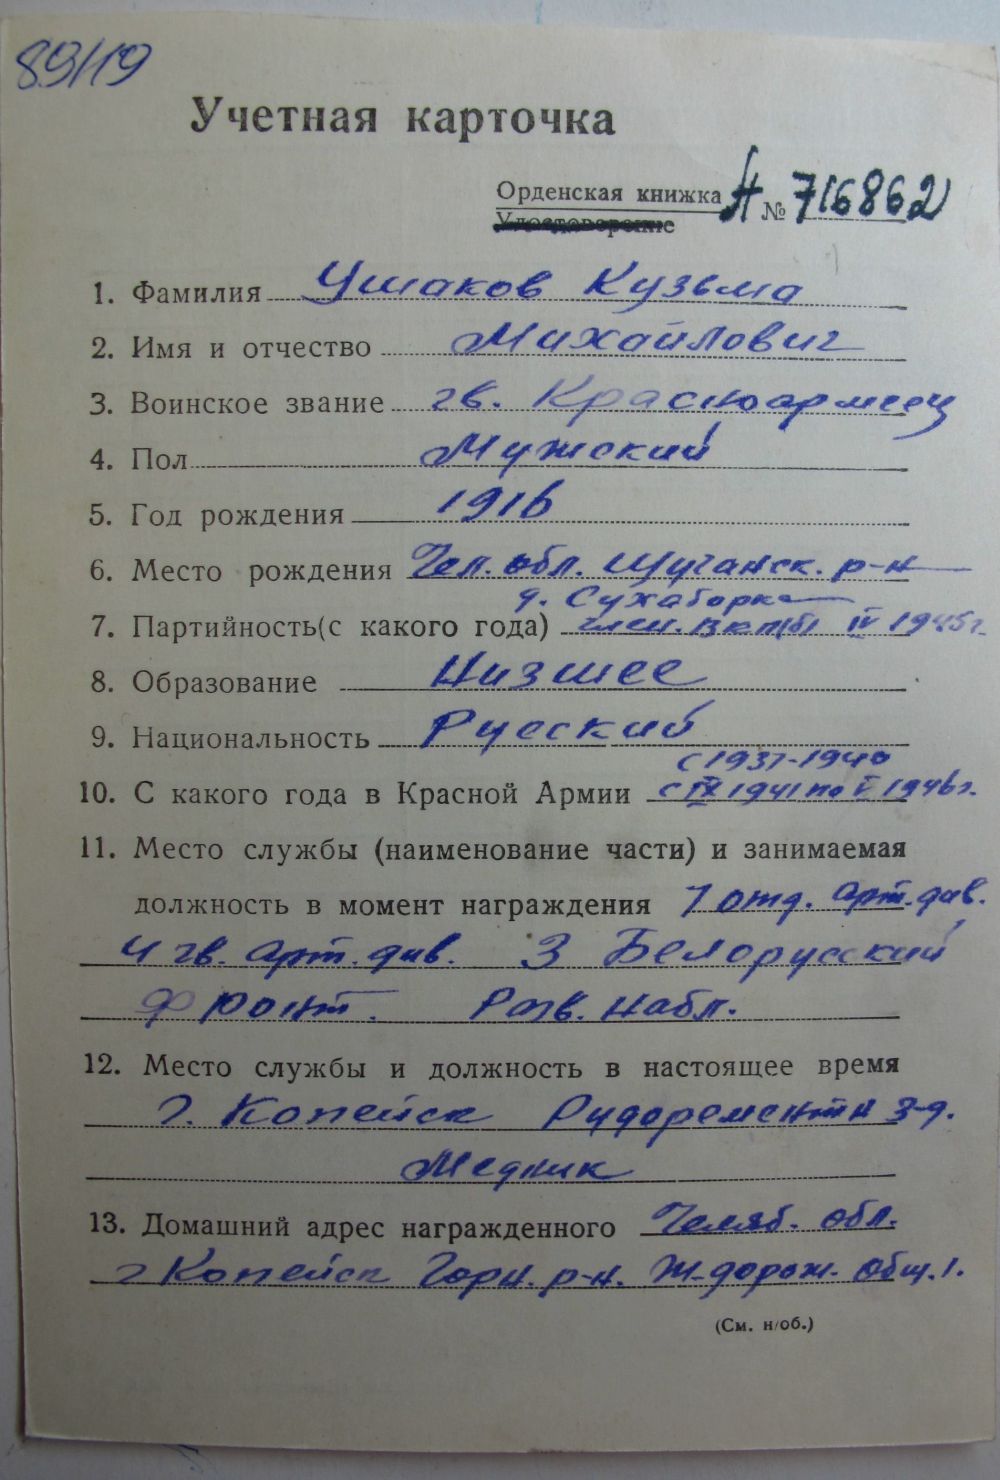 89/19
Учетная карточка
Орденская книжка А № 716862
Удостоверение
1. Фамилия Ушаков Кузьма
2. Имя и отчество Михайлович
3. Воинское звание гв. Красноармеец
4. Пол Мужский
5. Год рождения 1916
6. Место рождения Чел. обл. Шучанск. р-н
д. Сухаборка
7. Партийность (с какого года) член. ВКП(б) IV 1945г.
8. Образование Низшее
9. Национальность Русский
с 1937-1940
10. С какого года в Красной Армии с IX 1941 по V 1946г.
11. Место службы (наименование части) и занимаемая
должность в момент награждения 7 отд. арт. див.
4 гв. арт. див. 3 Белорусский
фронт. Разв. набл.
12. Место службы и должность в настоящее время
г. Копейск Рудоремонтн з-д.
Медник
13. Домашний адрес награжденного Челяб. обл.
г Копейск Горн. р-н. Ж-дорож. общ. 1.
(См. н/об.)